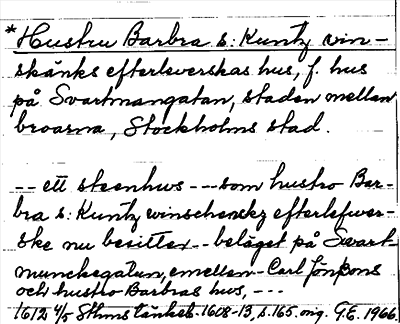 * Hustru Barbra s: Kuntz vin-
skänks efterleverskas hus, f. hus
på Svartmangatan, staden mellan
broarna, Stockholms stad.
-- ett steenhws --- som hustro Bar-
bra s: Kuntz winschenckz efterlefwer-
ske nu besitter -- beläget på Swart-
munckegatun, emellan -- Carl Jönßons
och hustro Barbras hws, ---
1612 4/5 Sthms tänkeb. 1608-13, s. 165. orig. G.E. 1966.